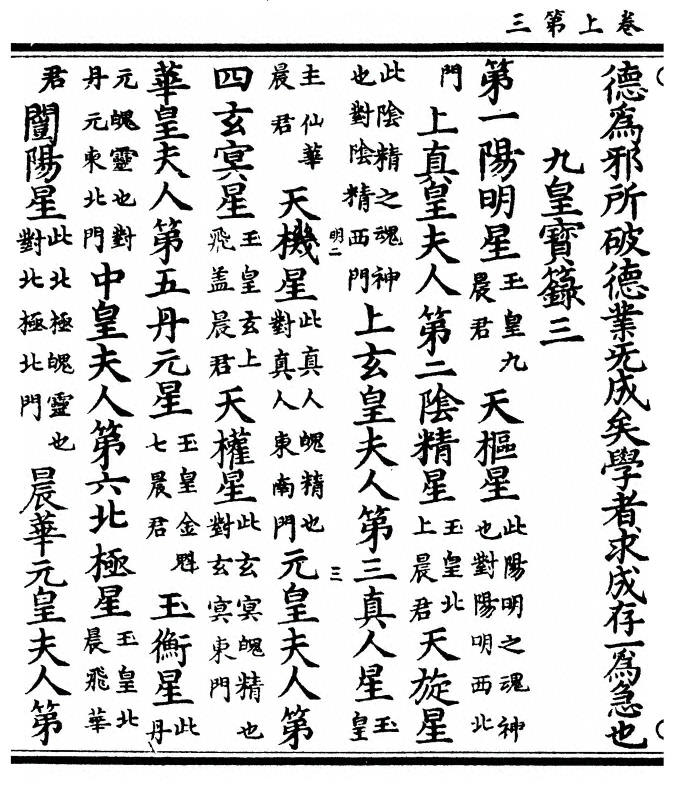 卷上第三
德爲邪所破德業旡成矣學者求成存一爲急也
九皇寶籙三
第一陽明星玉皇九晨君天樞星此陽明之魂神也對陽明西北
門上真皇夫人第二陰精星玉皇北上晨君天旋星
此陰精之魂神也對陰精西門上玄皇夫人第三真人星玉皇
明二 三
主仙華晨君天機星此真人魄精也對真人東南門元皇夫人第
四玄冥星玉皇玄上飛盖晨君天權星此玄冥魄精也對玄冥東門
華皇夫人第五丹元星玉皇金魁七晨君玉衡星此丹
元魄靈也對丹元東北門中皇夫人第六北極星玉皇北晨飛華
君闓陽星此北極魄靈也對北極北門晨華元皇夫人第